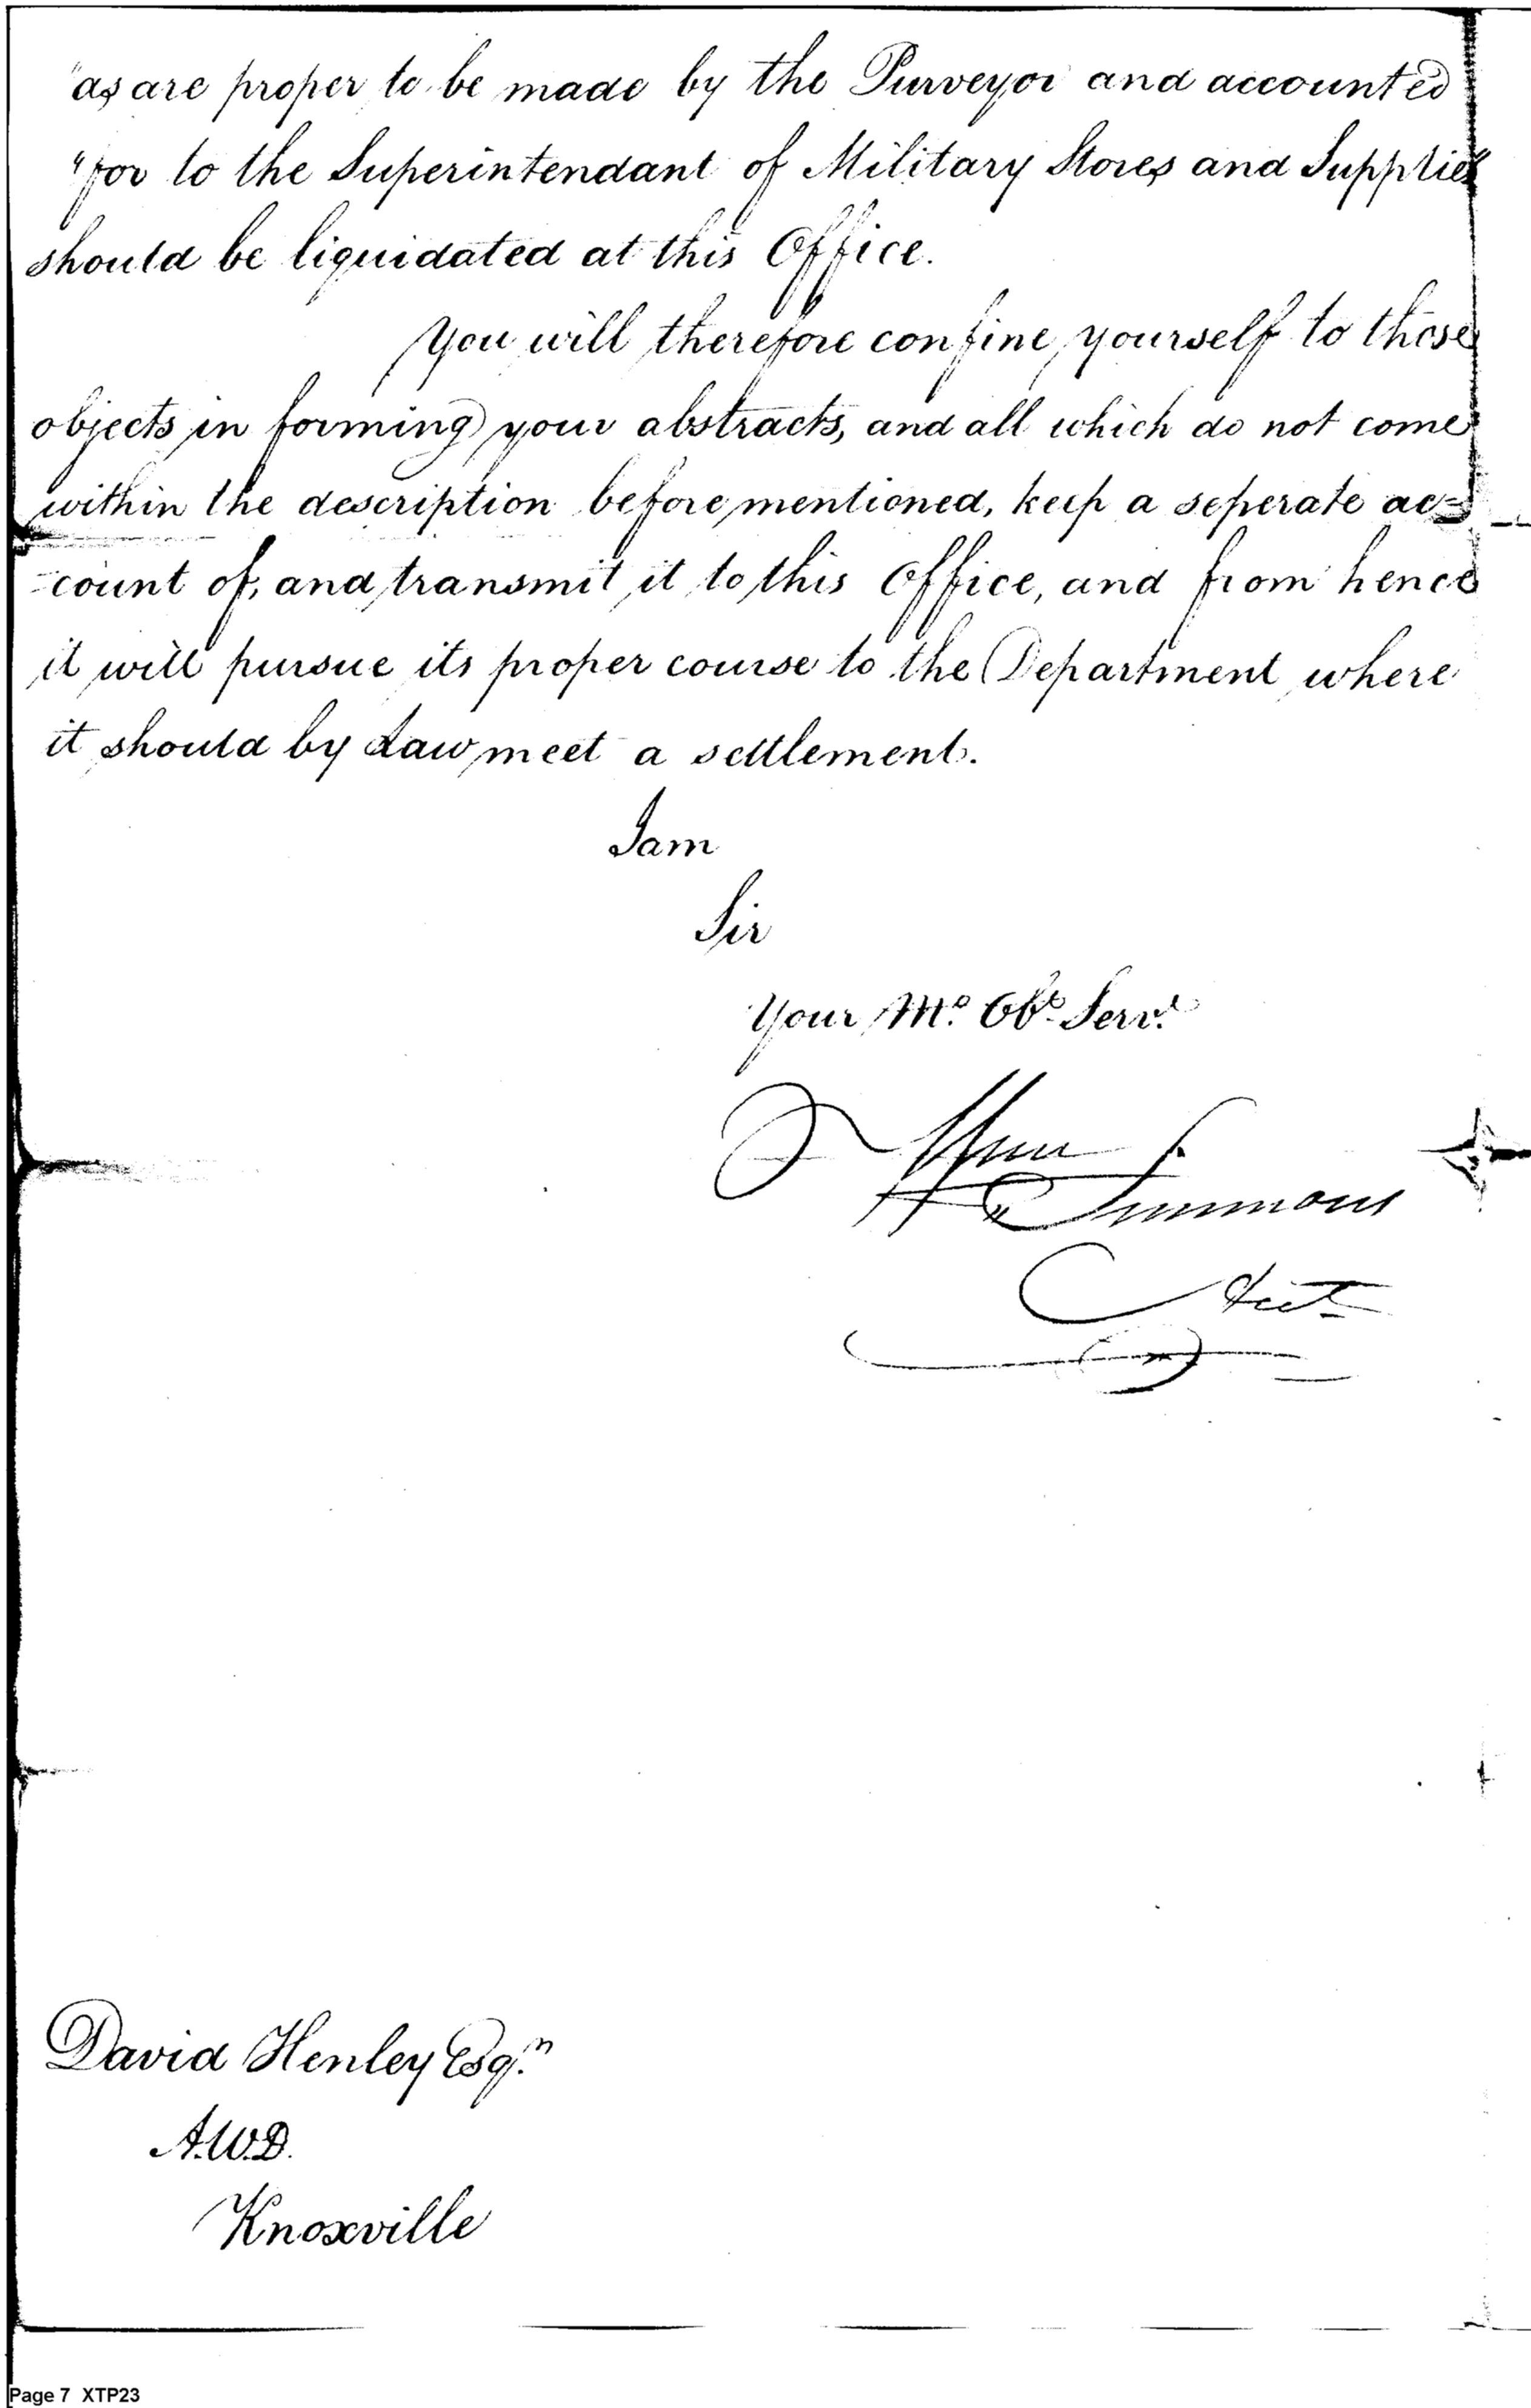 "as are proper to be made by the Purveyor and accounted
"for to the Superintendant of Military Stores and Supplies"
should be liquidated at this Office.
You will therefore confine yourself to those
objects in forming your abstracts, and all which do not come
within the description before mentioned, keep a seperate ac=
=count of, and transmit it to this Office, and from hence
it will pursue its proper course to the Department where
it should by Law meet a settlement.
I am
Sir
Your Mo. Obt. Servt.
Wm Simmons
Acct
David Henley Esqr.
A.W.D.
Knoxville
Page 7 XTP23